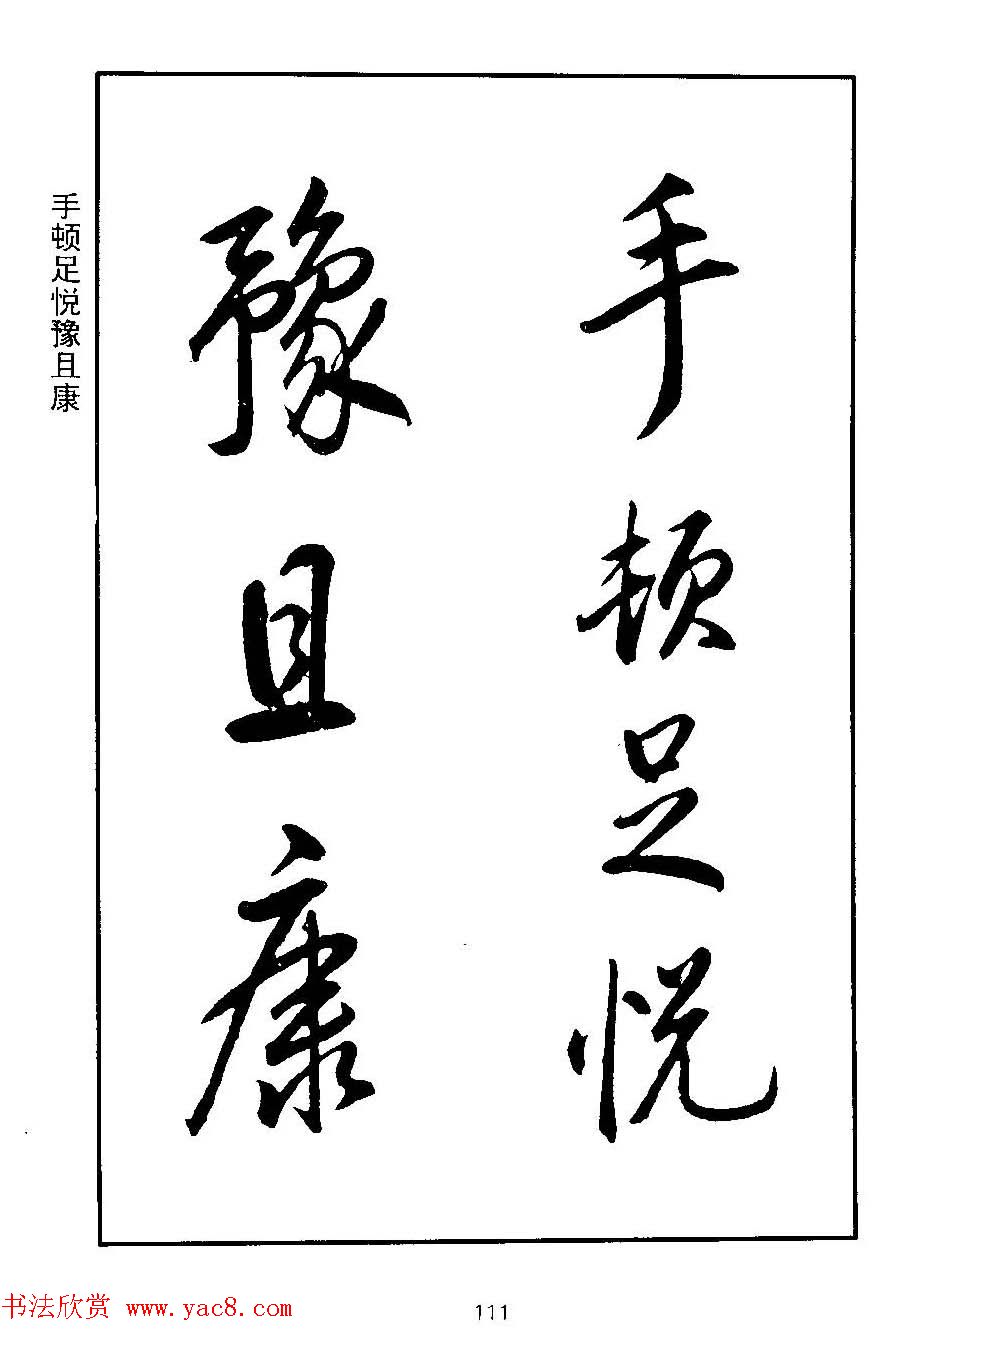 手顿足悦
豫且康
手顿足悦豫且康
书法欣赏 www.yac8.com
111